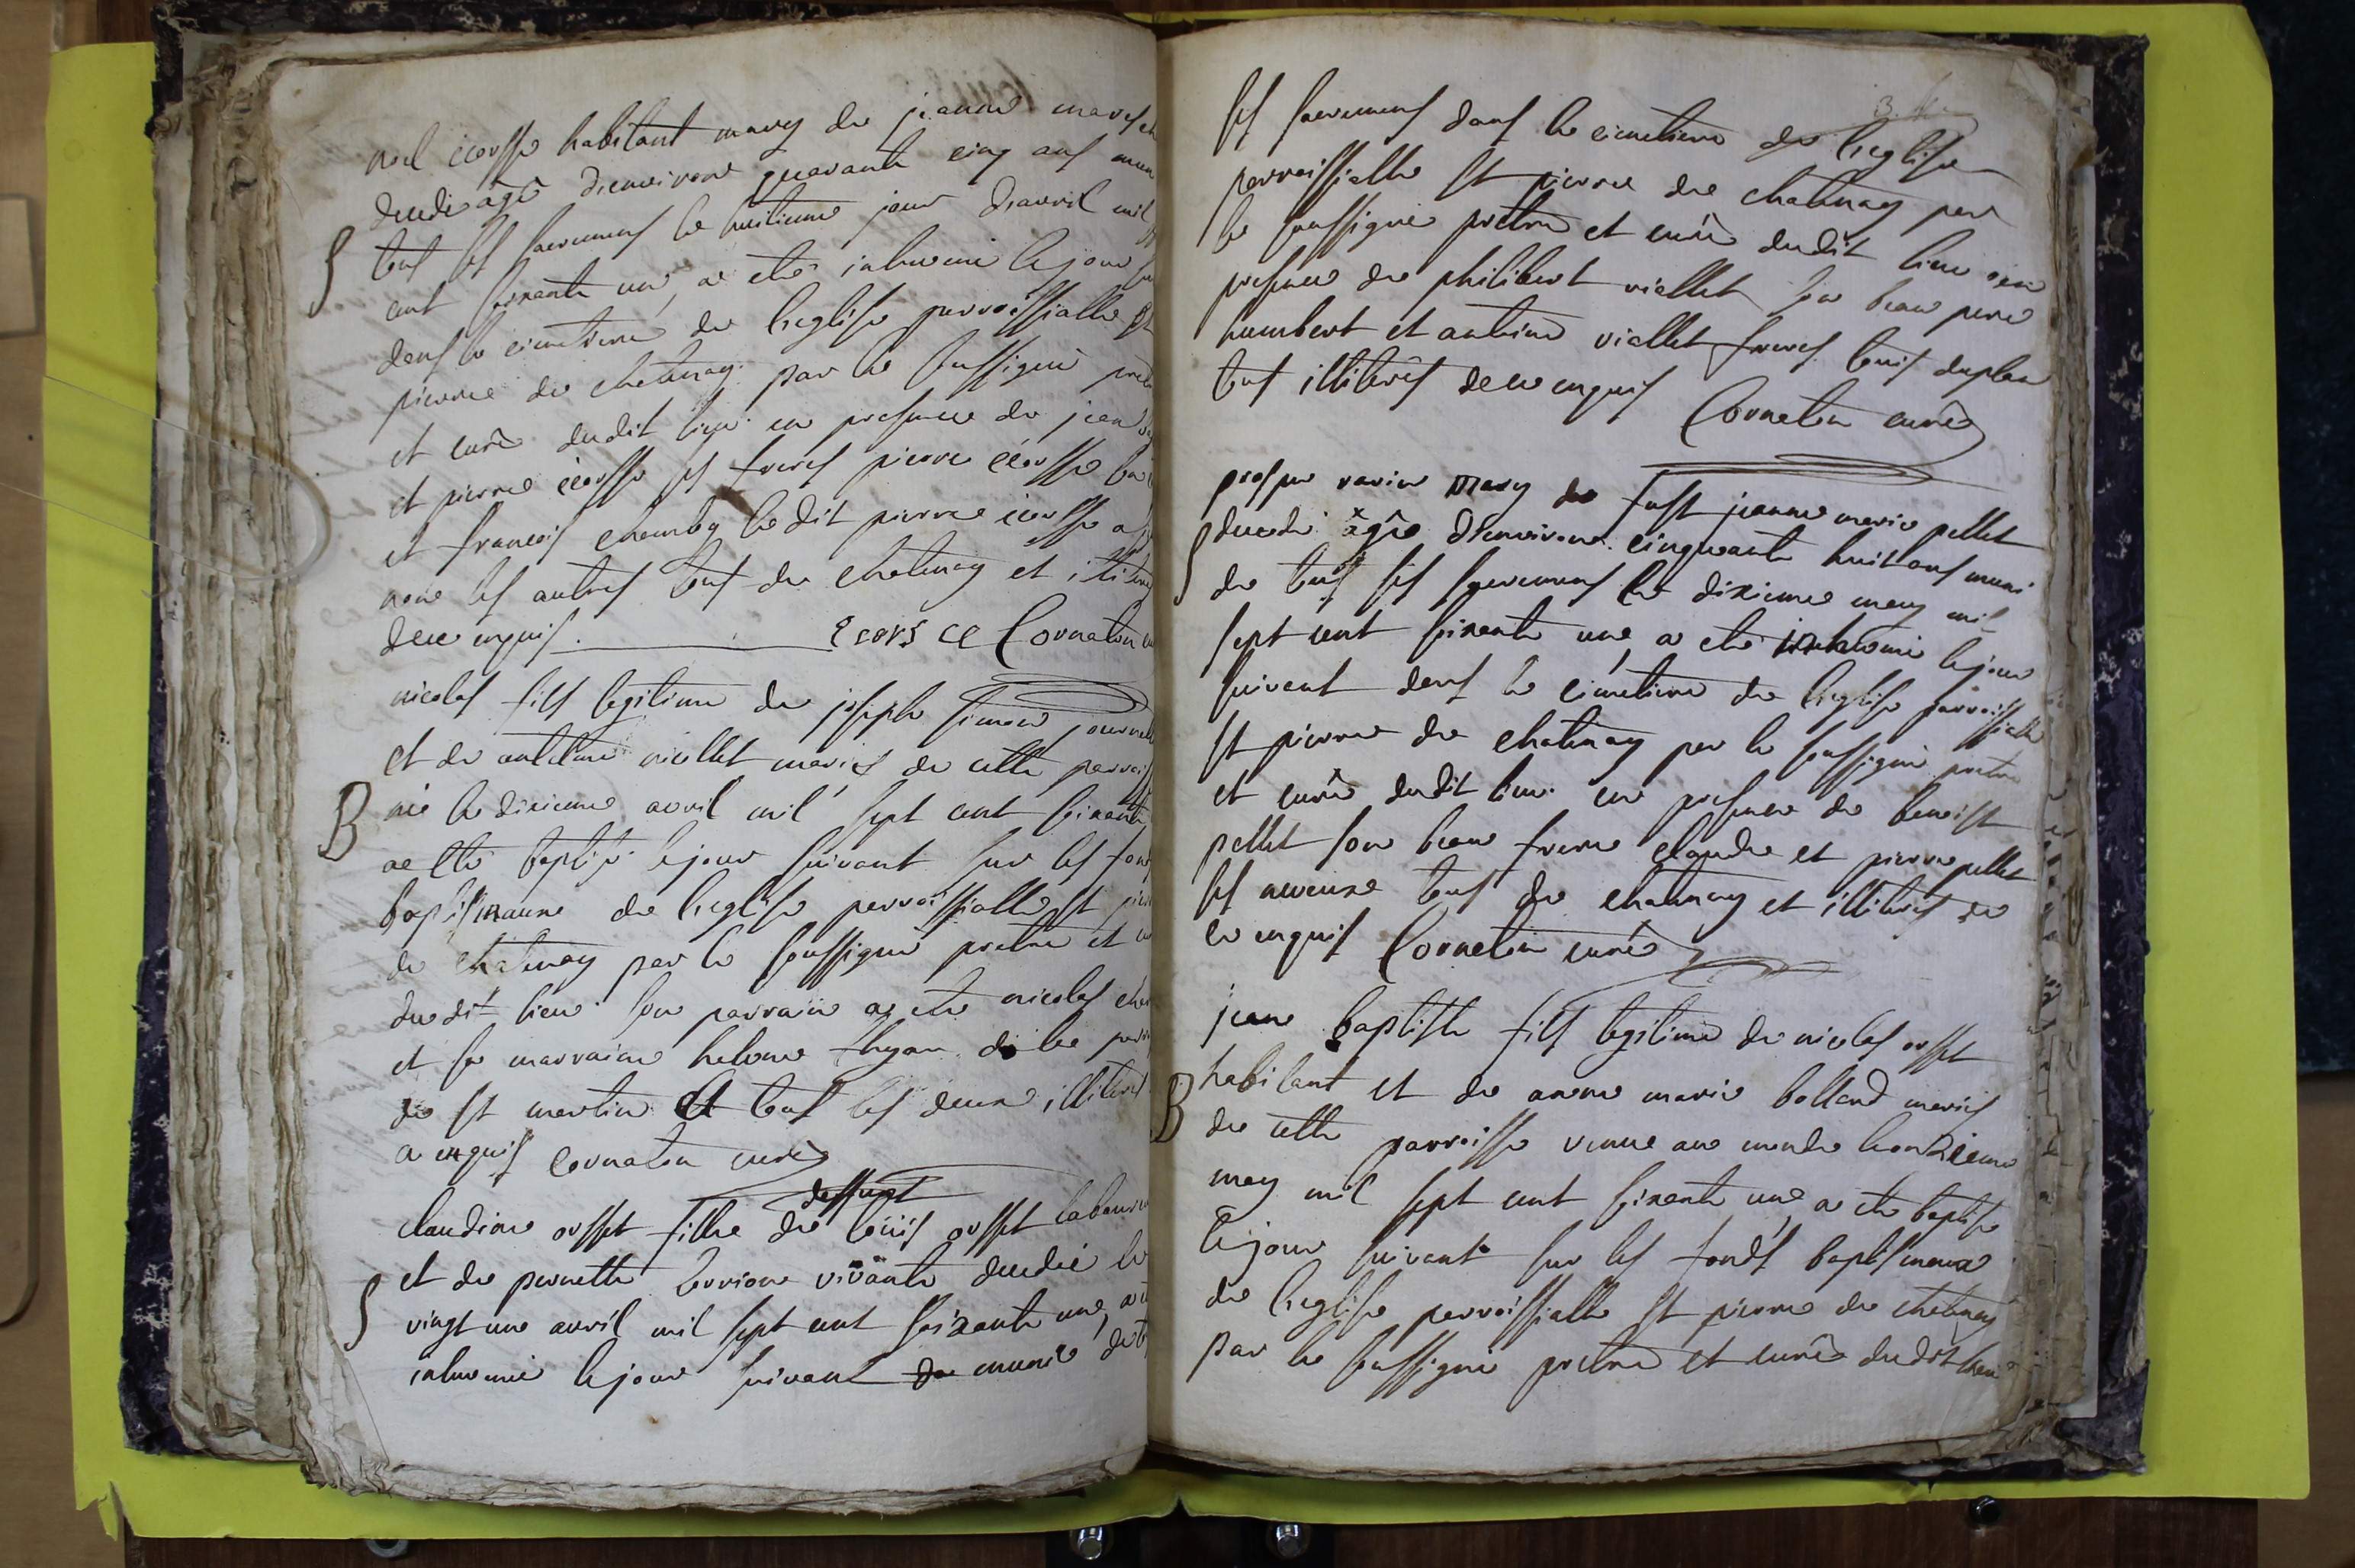 noel ecorsse habitant mary de jeanne
decedé agé denviron quarante cinq ans
S
tous ses sacremens le huitieme jour davril mil
cent soixante un, a eté inhumé le jour
dans le cimetiere de leglise parroissialle St
pierre de chatenay par le soussigné
et curé dudit lieu en presence de jean
et pierre ecorsse ses freres pierre ecorsse
et francois chamby ledit pierre ecorsse a
non les autres tous de chatenay et
de ce enquis. Ecors ce Cornaton
nicolas fils legitime de joseph simon
et de antoine viollet mariés de cette
B
né le dixieme avril mil sept cent soixante
a eté baptisé le jour suivant sur les
baptismaux de leglise parroissialle St
de chatenay par le soussigné pretre et
dudit lieu son parrain a eté nicolas
et sa marraine helene de la
de St martin et tous les deux
a enquis Cornaton curé
deffunt
claudine osset fille de loüis osset
et de pernette vivante decedée le
S
vingt un avril mil sept cent soixante un,
inhumée le jour suivant de munie de
ses sacremens dans le cimetiere de leglise
parroissialle St pierre de chatenay par
le soussigné pretre et curé dudit lieu en
presence de philibert viallet son beau pere
humbert et antoine viallet freres
tous illiterés de ce enquis Cornaton curé
mary de fust jeanne marie pellet
S
decedé agé denviron cinquante huit ans muni
de tous ses sacremens le dixieme may mil
sept cent soixante un, a eté inhumé le jour
suivant dans le cimetiere de leglise parroissialle
St pierre de chatenay par le soussigné pretre
et curé dudit lieu en presence de benoist
pellet son beau frere claude et pierre pellet
ses neveux tous de chatenay et illiterés de
ce enquis Cornaton curé
jean baptiste fils legitime de nicolas osset
habitant et de anne marie bolland mariés
B
de cette parroisse venu au monde le onzieme
may mil sept cent soixante un a eté baptisé
le jour suivant sur les fonds baptismaux
de leglise parroissialle St pierre de chatenay
par le soussigné pretre et curé dudit lieu